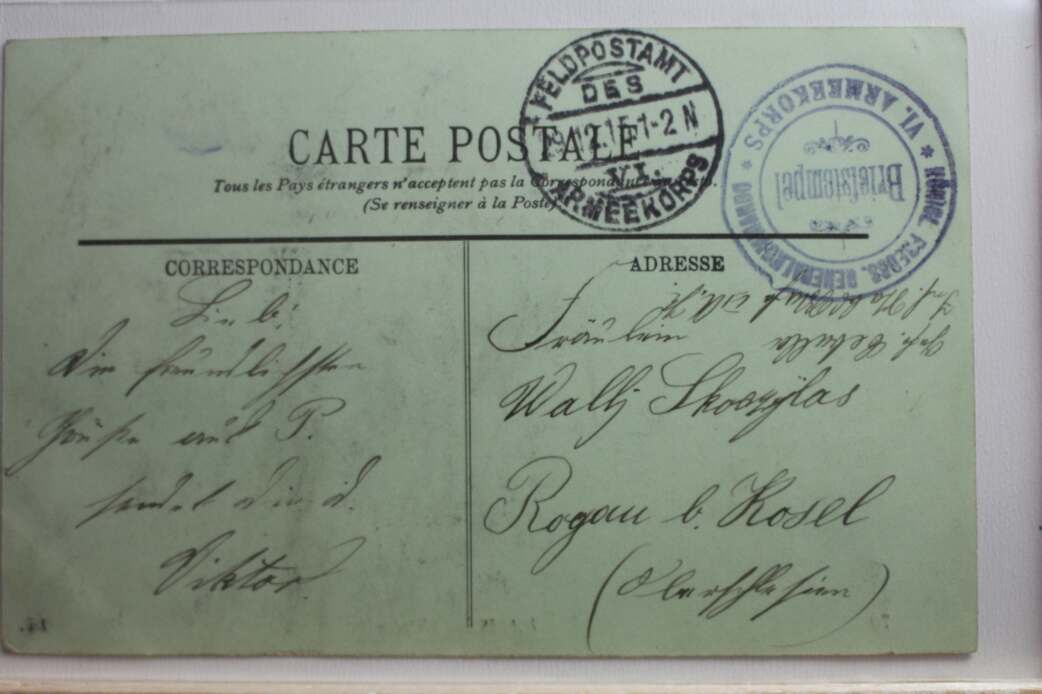 CARTE POSTALE
Tous les Pays étrangers n'acceptent pas la Correspondance
(Se renseigner à la Poste)
FELDPOSTAMT
DES
12.15.1-2N
VI.
ARMEEKORPS
VI. ARMEEKORPS
Briefstempel
CORRESPONDANCE
Lieb.
Die freundlichsten
Grüße aus P.
sendet Dir d.
Viktor
ADRESSE
Fräulein
Wally Skoczylas
Rogau b. Kosel
(Oberschlesien)